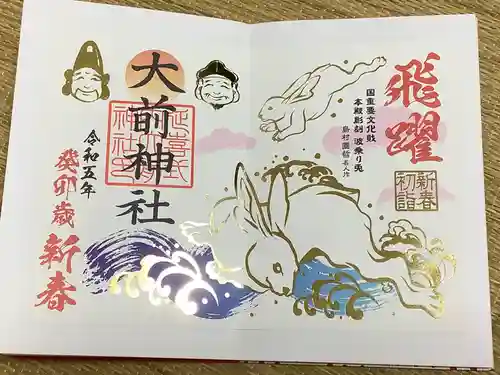 飛躍
新春
初詣
国重要文化財
本殿彫刻 波乗り兎
島村圓哲名人作
大前神社
延喜式
神社印
令和五年
癸卯歳 新春